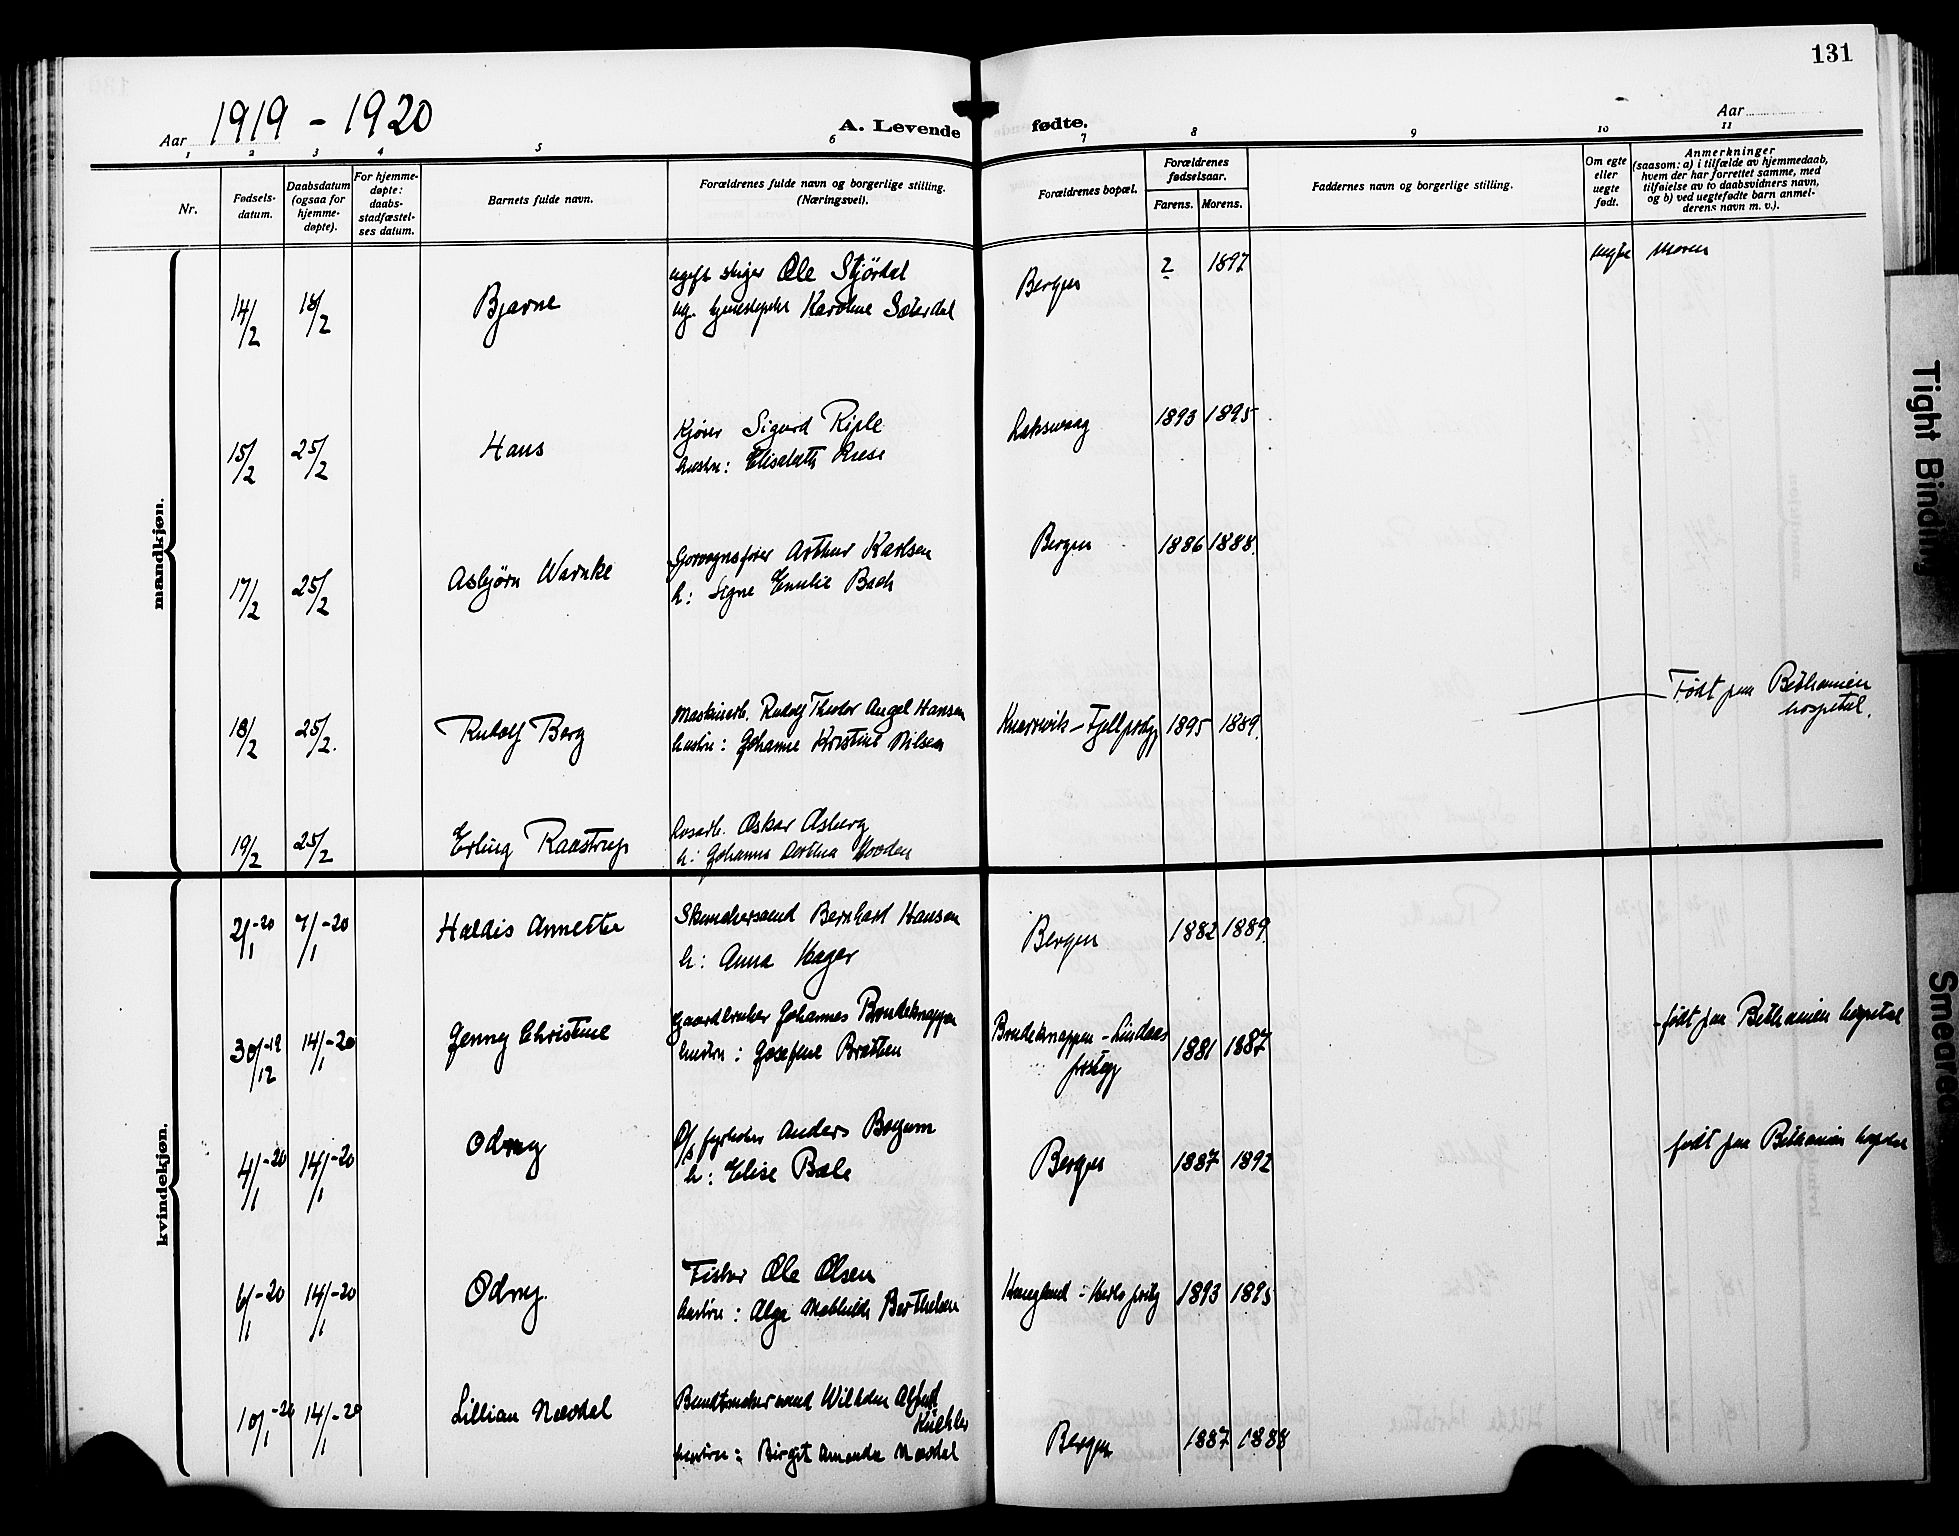 131
Aar 1919 - 1920
A. Levende fødte.
Aar
1 2 3 4 5 6 7 8 9 10 11
Nr.
Fødsels-
datum.
Daabsdatum
(ogsaa for
hjemme-
døpte).
For hjemme-
døpte:
daabs-
stadfæstel-
ses datum.
Barnets fulde navn.
Forældrenes fulde navn og borgerlige stilling.
(Næringsvei).
Forældrenes bopæl.
Forældrenes
fødselsaar.
Farens. Morens.
Faddernes navn og borgerlige stilling.
Om egte
eller
uegte
født.
Anmerkninger
(saasom: a) i tilfælde av hjemmedaab,
hvem der har forrettet samme, med
tilføielse av to daabsvidners navn,
og b) ved uegtefødte barn anmel-
derens navn m. v.).
mandkjøn.
14/2 18/2 Bjarne
ugift Ole Stjördal
ug. Karoline Sæterdal
Bergen ? 1897 uegte Moren
15/2 25/2 Hans
Kjører Sigurd Riple
hustru: Elisabeth
Laksevaag 1893 1895
17/2 25/2 Asbjørn Warnke
Arthur Karlsen
h: Signe Emilie Bach
Bergen 1886 1888.
18/2 25/2. Rudolf Berg
Maskinarb. Rudolf Theodor Angel Hansen
hustru: Johanne Kristine Nilsen
Knarrevik - Fjell prstgj 1895 1889.
Født paa Bethanien
hospital.
19/2 25/2 Erling Raastrup
Oskar Asberg
h: Johanna
kvindekjøn.
2/1-20 7/1-20 Haldis Annette
Bernhard Hansen
h: Anna Hager
Bergen 1882 1889.
30/12-19 14/1-20 Jenny Christine
Gaardbruker Johannes Brudeknappen
hustru: Josefine Bratten
Brudeknappen - Lindaas
prstgj 1881 1887
født paa Bethanien hospital
4/1-20 14/1-20 Odny
D/s fyrbøter Anders Borgum
h: Elise Bale
Bergen 1887 1892
født paa Bethanien hospital
6/1-20 14/1-20 Odny.
Fisker Ole Olsen
hustru: Alga Mathilde Berthelsen
Herlø prstgj 1893 1895
10/1-20 14/1-20 Lillian Næsdal
Buntmakersvend Wilhelm Alfred
Küehler
hustru: Birgit Amanda Næsdal
Bergen 1887 1888
Tight Binding
Smeared